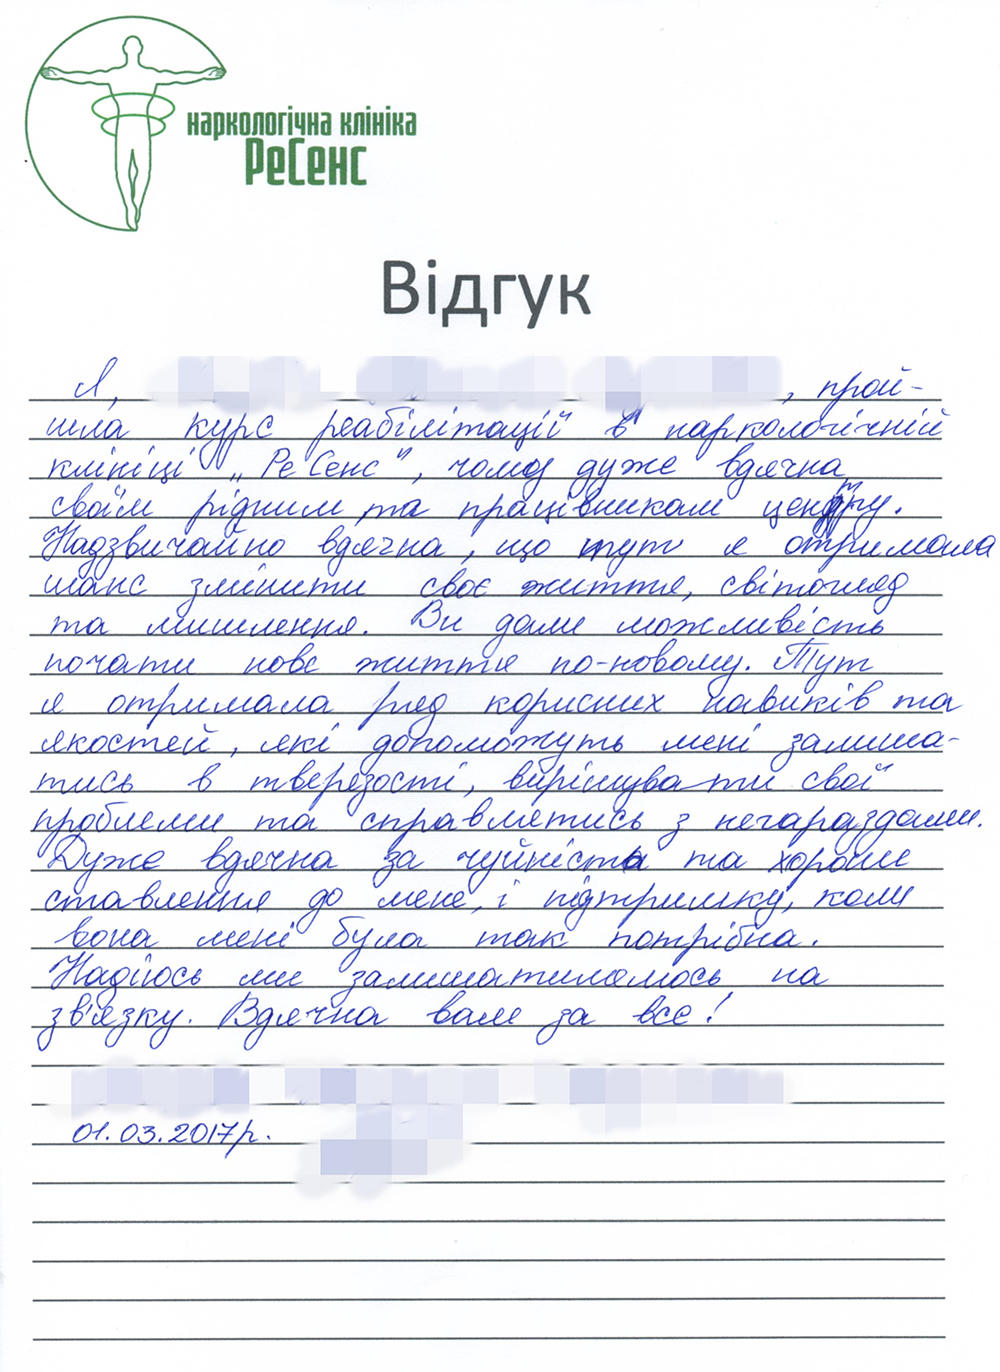 наркологічна клініка
РеСенс
Відгук
Я, , прой-
шла курс реабілітації в наркологічній
клініці „РеСенс", чому дуже вдячна
своїм рідним та працівникам центру.
Надзвичайно вдячна, що тут я отримала
шанс змінити своє життя, світогляд
та мислення. Ви дали можливість
почати нове життя по-новому. Тут
я отримала ряд корисних навиків та
якостей, які допоможуть мені залиша-
тись в тверезості, вирішувати свої
проблеми та справлятись з негараздами.
Дуже вдячна за чуйність та хороше
ставлення до мене, і підтримку, коли
вона мені була так потрібна.
Надіюсь ми залишатимемось на
зв'язку. Вдячна вам за все!
01.03.2017р.